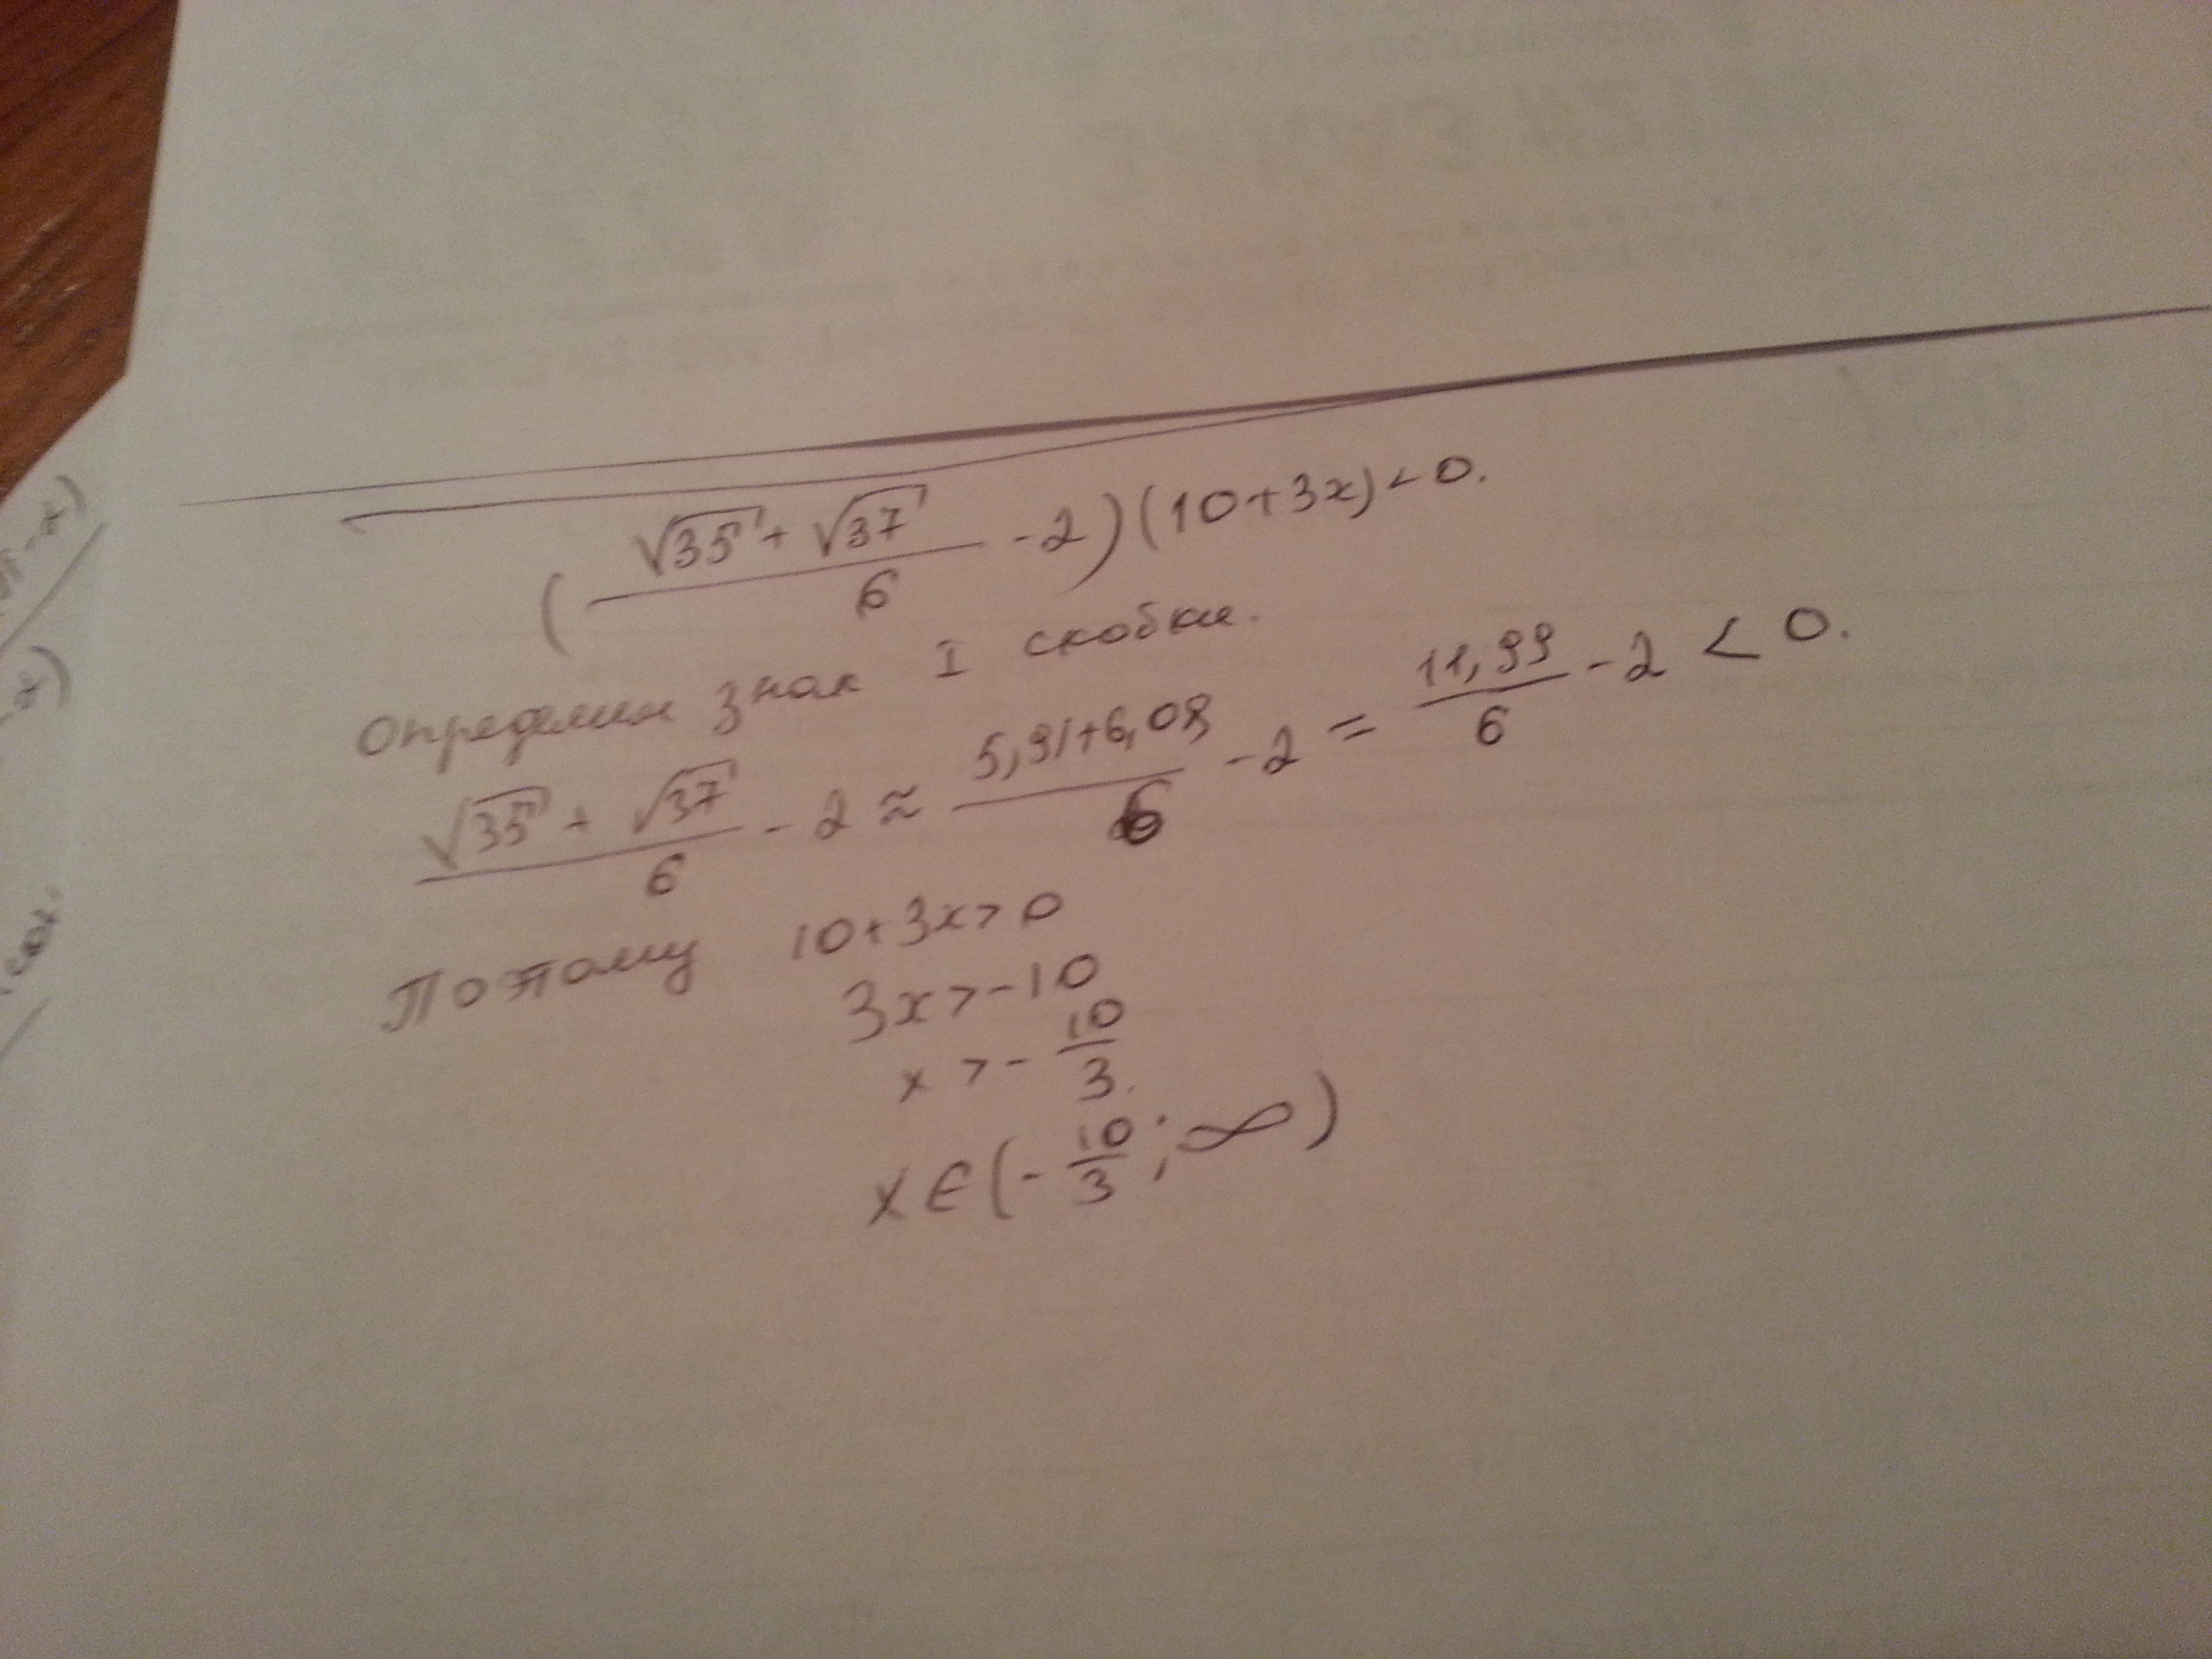 (√35 + √37 / 6 - 2)(10+3x) < 0.
Определим знак I скобки.
√35 + √37 / 6 - 2 ≈ 5,91+6,08 / 6 - 2 = 11,99 / 6 - 2 < 0.
Потому 10+3x>0
3x>-10
x > - 10/3.
x ∈ (- 10/3 ; ∞)